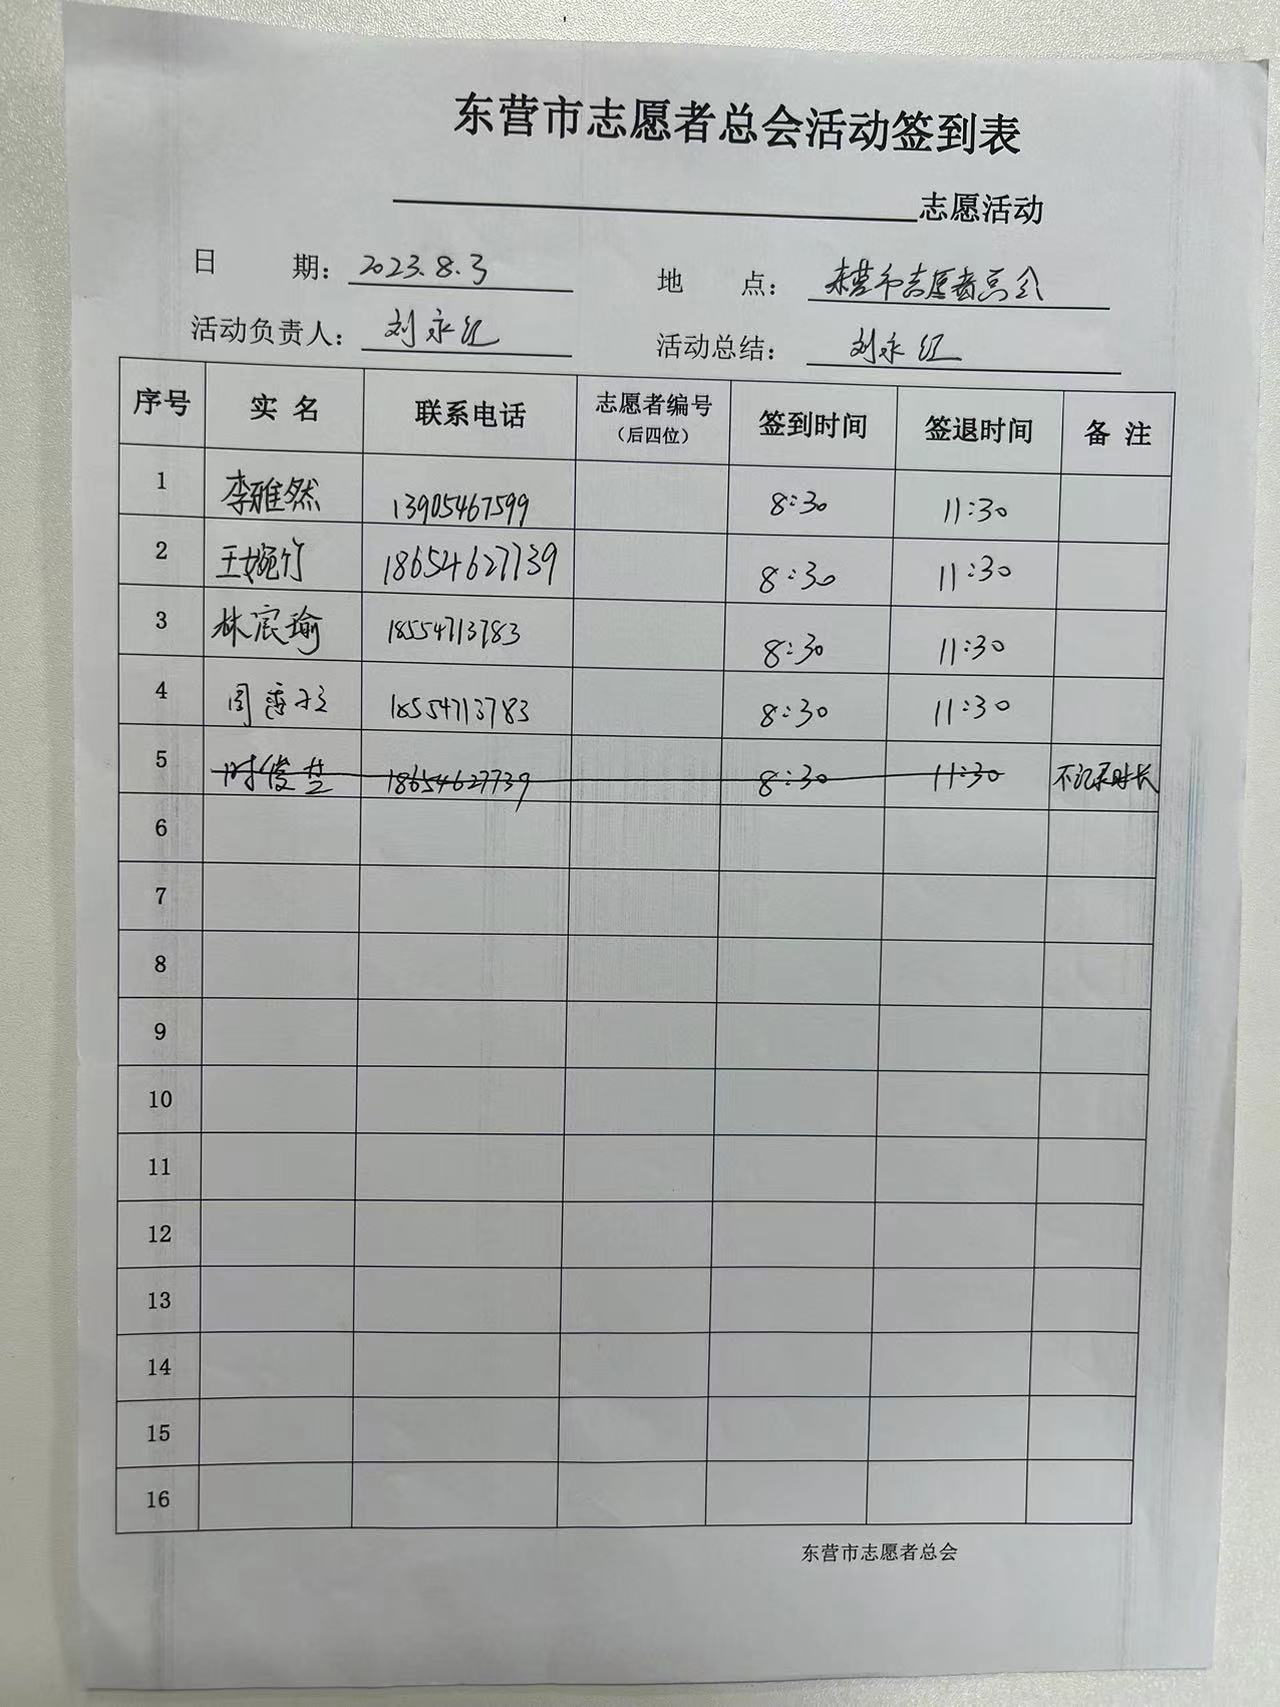 东营市志愿者总会活动签到表
志愿活动
日 期：2023.8.3 地 点：东营市志愿者总会
活动负责人：刘永红 活动总结：刘永红
序号 实 名 联系电话 志愿者编号（后四位） 签到时间 签退时间 备 注
1 李雅然 13905467599 8:30 11:30
2 王婉竹 18654627739 8:30 11:30
3 林宸瑜 18554713783 8:30 11:30
4 周 18554713783 8:30 11:30
5 时俊楚 18654627739 8:30 11:30 不记录时长
6
7
8
9
10
11
12
13
14
15
16
东营市志愿者总会